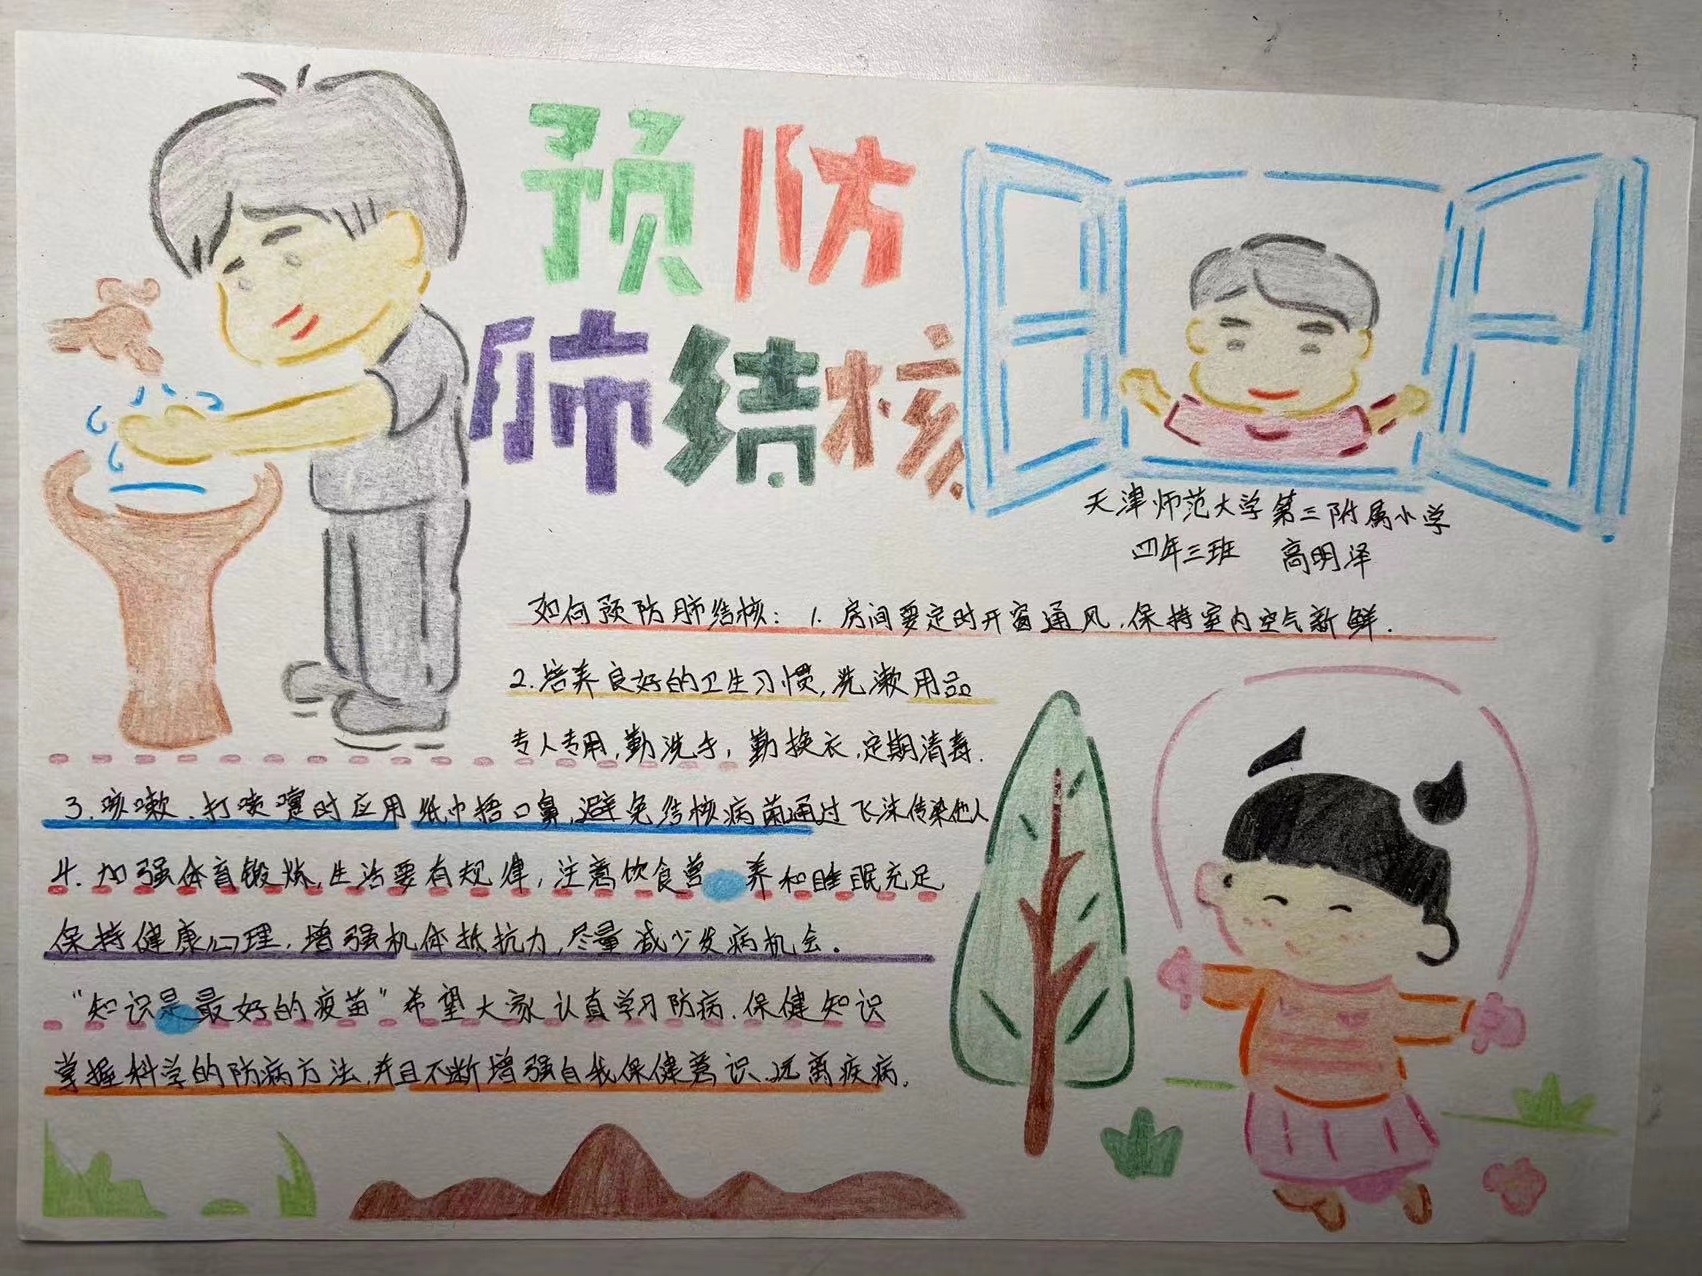 预防
肺结核
天津师范大学第三附属小学
四年三班 高明泽
如何预防肺结核：1.房间要定时开窗通风,保持室内空气新鲜.
2.培养良好的卫生习惯,洗漱用品
专人专用,勤洗手,勤换衣,定期消毒.
3.咳嗽、打喷嚏时应用纸巾捂口鼻,避免结核病菌通过飞沫传染他人
4.加强体育锻炼,生活要有规律,注意饮食营养和睡眠充足
保持健康心理,增强机体抵抗力,尽量减少发病机会。
“知识是最好的疫苗”希望大家认真学习防病.保健知识
掌握科学的防病方法,并且不断增强自我保健意识.远离疾病.